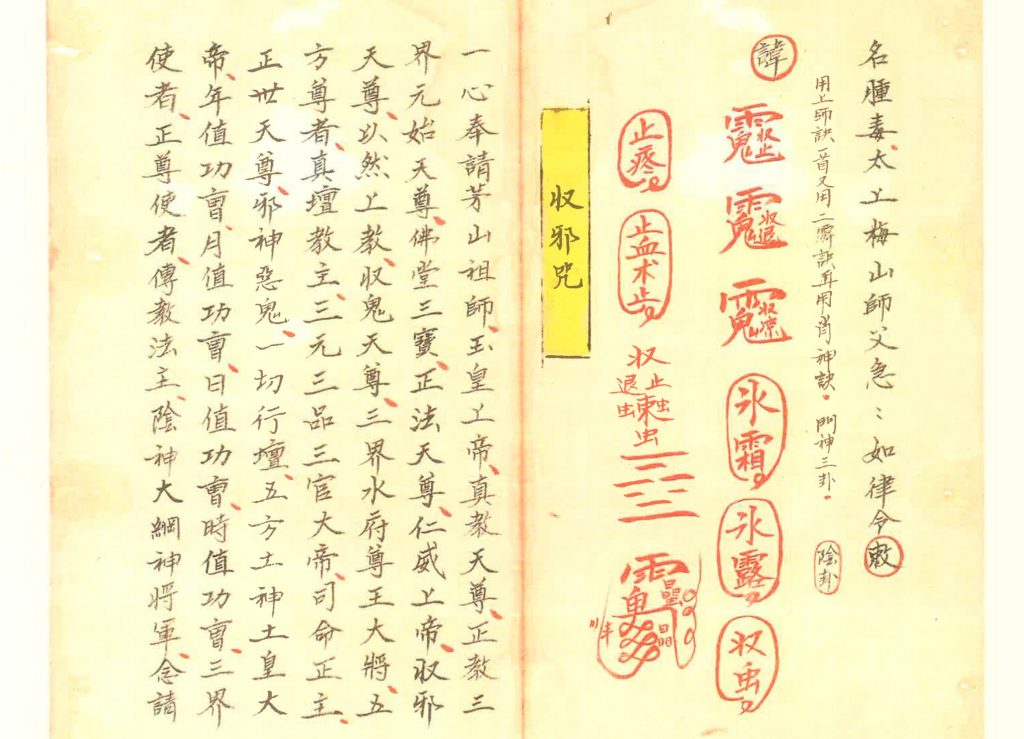 名腫毒太上梅山師父急〻如律令敕
用上師訣一首又用二霄訣再用肖神訣。門神三卦。
陰卦
諱
收止
收退
收凉
氷霜
氷露
收虫
止疼
止血术步
收邪咒
一心奉請芳山祖師玉皇上帝真教天尊正教三
界元始天尊佛堂三寶正法天尊仁威上帝收邪
天尊以然上教收鬼天尊三界水府尊王大將五
方尊者真壇教主三元三品三官大帝司命正主
正世天尊邪神惡鬼一切行壇五方土神土皇大
帝年值功曹月值功曹日值功曹時值功曹三界
使者正尊使者傳教法主陰神大綱神將軍念請